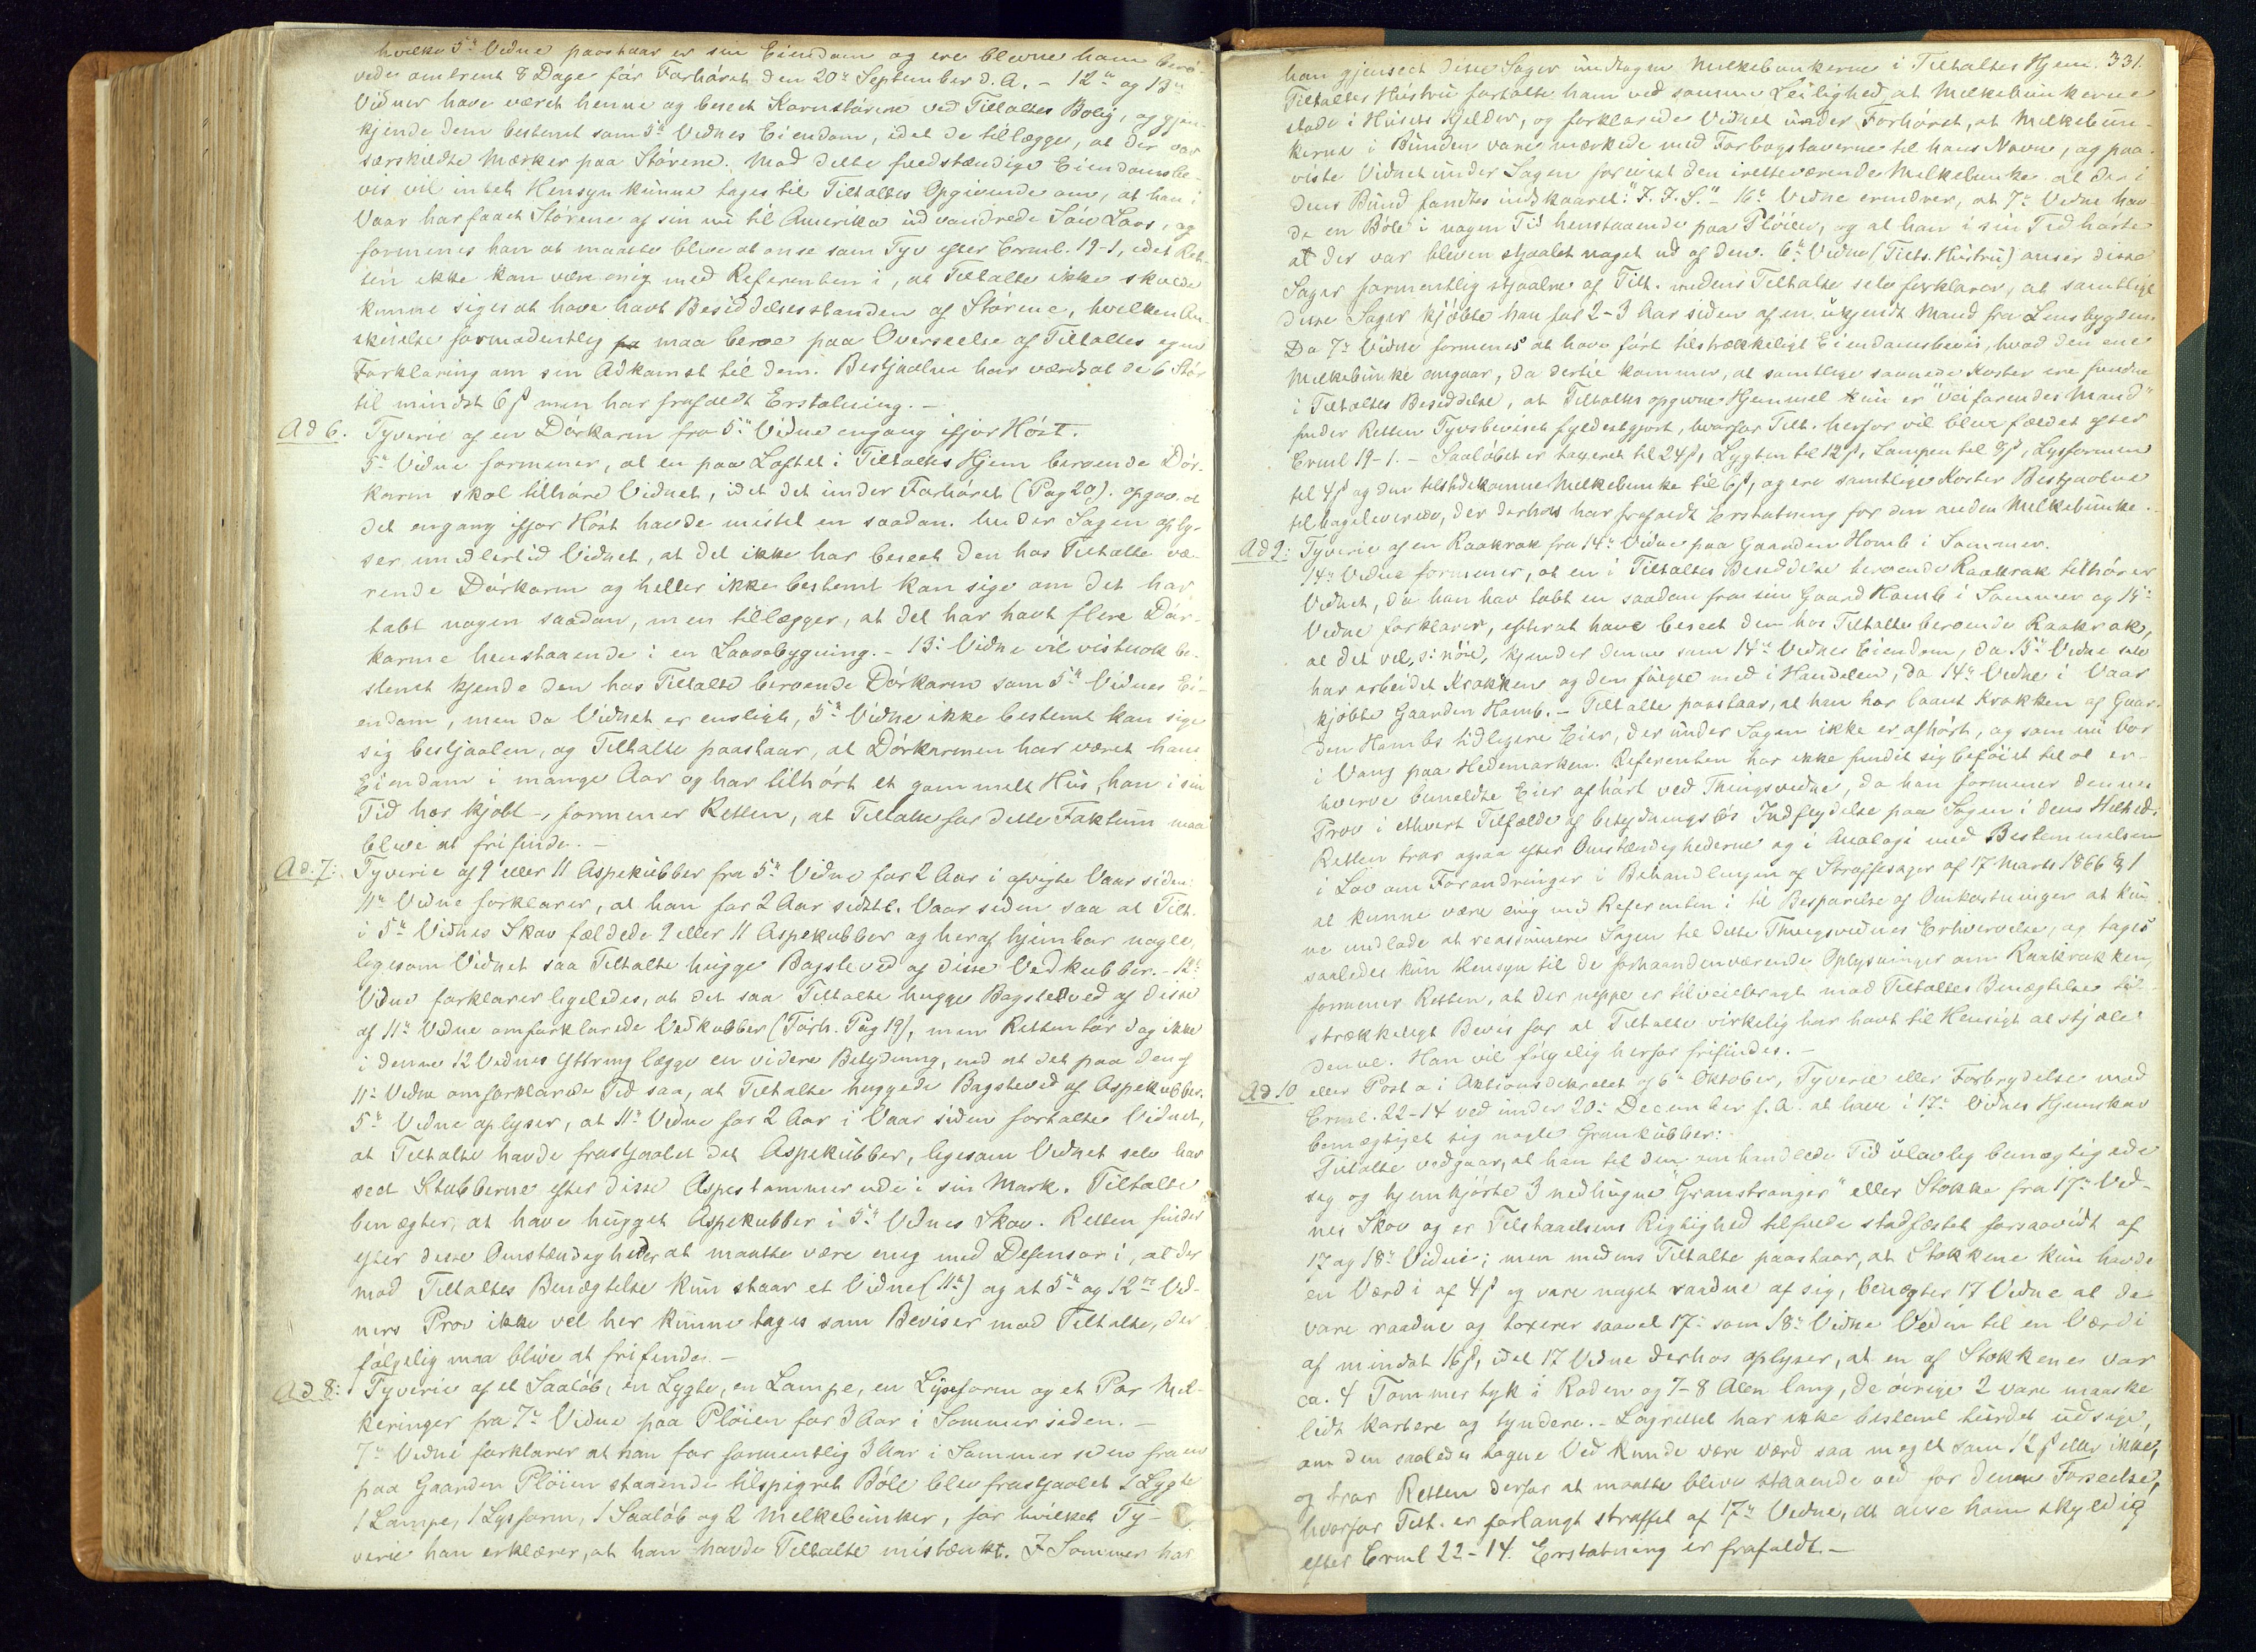 hvilke 5te Vidne paastaar er sin Eiendom og ere blevne ham berö-
vede omtrent 8 Dage för Forhöret den 20de September d. A. - 12te og 13de
Vidner have været henne og beseet Kornstörene ved Tiltaltes Bolig, og gjen-
kjende dem bestemt som 5te Vidnes Eiendom, idet de tillægger, at der var
særskildte Mærker paa Störene. Mod dette fuldstændige Eiendomsbe-
vis vil intet Hensyn kunne tages til Tiltaltes Opgivende om, at han i
Vaar har faaet Störene af sin nu til Amerika udvandrede Sön Lars, og
formenes han at maatte blive at anse som Tyv efter Crml. 19-1, idet Ret-
ten ikke kan være enig med Referenten i, at Tiltalte ikke skulde
kunne siges at have havt Besiddelsesstanden af Störene, hvilken An-
skuelse formodentlig maa beroe paa Overseelse af Tiltaltes egen
Forklaring om sin Adkomst til dem. Bestjaalne har værdsat de 6 Stör
til mindst 6 ß men har frafaldt Erstatning. -
Ad 6. Tyverie af en Dörkarm fra 5te Vidne engang ifjor Höst.
5te Vidne formener, at en paa Loftet i Tiltaltes Hjem beroende Dör-
karm skal tilhöre Vidnet, idet det under Forhöret (Pag 20). opgav. at
det engang ifjor Höst havde mistet en saadan. Under Sagen oply-
ser imidlertid Vidnet, at det ikke har beseet den hos Tiltalte væ-
rende Dörkarm og heller ikke bestemt kan sige om det har
tabt nogen saadan, men tillægger, at det har havt flere Dör-
karme henstaaende i en Laavebygning. - 13de Vidne vil vistnok be-
stemt kjende den hos Tiltalte beroende Dörkarm som 5te Vidnes Ei-
endom, men da Vidnet er enslight, 5te Vidne ikke bestemt kan sige
sig bestjaalen, og Tiltalte paastaar, at Dörkarmen har været hans
Eiendom i mange Aar og har tilhört et gammelt Hus, han i sin
Tid har kjöbt -, formener Retten, at Tiltalte for dette Faktum maa
blive at frifinde. -
Ad. 7: Tyverie af 9 eller 11 Aspekubber fra 5te Vidne for 2 Aar i afvigte Vaar siden:
11te Vidne forklarer, at han for 2 Aar sidstl. Vaar siden saa at Tilt.
i 5te Vidnes Skov fældede 9 eller 11 Aspekubber og heraf hjembar nogle,
ligesom Vidnet saa Tiltalte hugge Bagsteved af disse Vedkubber. - 12te
Vidne forklarer ligeledes, at det saa Tiltalte hugge Bagsteved af disse
af 11te Vidne omforklarede Vedkubber (Forh. Pag 19), men Retten tör dog ikke
i denne 12 Vidnes Yttring lægge en videre Betydning, end at det paa den af
11te Vidne omforklarede Tid saa, at Tiltalte huggede Bagsteved af Aspekubber.
5te Vidne oplyser, at 11te Vidne for 2 Aar i Vaar siden fortalte Vidnet,
at Tiltalte havde frastjaalet det Aspekubber, ligesom Vidnet selv har
seet Stubberne efter disse Aspestammer ude i sin Mark. Tiltalte
benægter, at have hugget Aspekubber i 5te Vidnes Skov. Retten finder
efter disse Omstændigheder at maatte være enig med Defensor i, at der
mod Tiltaltes Benægtelse kun staar et Vidne (11te) og at 5te og 12te Vid-
ners Prov ikke vel her kunne tages som Beviser mod Tiltalte, der
fölgelig maa blive at frifinde. -
Ad. 8: Tyverie af et Saalöb, en Lygte, en Lampe, en Lyseform og et Par Mel-
keringer fra 7de Vidne paa Plöien for 3 Aar i Sommer siden. -
7de Vidne forklarer at han for formentlig 3 Aar i Sommer siden fra en
paa Gaarden Plöien staaende tilspigret Böle blev frastjaalet 1 Lygte
1 Lampe, 1 Lysform, 1 Saalöb og 2 Melkebunker, for hvilket Ty-
verie han erklærer, at han havde Tiltalte mistænkt. I Sommer har
331.
han gjenseet disse Sager undtagen Melkebunkerne i Tiltaltes Hjem.
Tiltaltes Hustru fortalte ham ved samme Leilighed, at Melkebunkerne
stode i Husets Kjelder, og forklarede Vidnet under Forhöret, at Melkebun-
kerne i Bunden vare mærkede med Forbogstaverne til hans Navne, og paa-
viste Vidnet under Sagen forevist den iretteværende Melkebunke at der i
dens Bund fandtes indskaaret: "J. J. S." - 16de Vidne erindrer, at 7de Vidne hav-
de en Böle i nogen Tid henstaaende paa Plöien, og at han i sin Tid hörte
at der var bleven stjaalet noget ud af den. 6te Vidne (Tilts. Hustru) anser disse
Sager formentlig stjaalne af Tilt. medens Tiltalte selv forklarer, at samtlige
disse Sager kjöbte han for 2-3 Aar siden af en ukjendt Mand fra Lensbygden.
Da 7de Vidne formenes at have fört tilstrækkeligt Eiendomsbevis, hvad den ene
Melkebunke angaar, da dertil kommer, at samtlige savnede Koster ere fundne
i Tiltaltes Besiddelse, at Tiltaltes opgivne Hjemmel kun er "veifarendes Mand"
finder Retten Tyvsbeviset fyldestgjort, hvorfor Tilt. herfor vil blive fældet efter
Crml 19-1. - Saalöbet er taxeret til 24 ß, Lygten til 12 ß, Lampen til 9 ß, Lysformen
til 4 ß og den tilstedekomne Melkebunke til 6 ß, og ere samtlige Koster Bestjaalne
tilbageleverede, der derhos har frafaldt Erstatning for den anden Melkebunke.
Ad 9: Tyverie af en Raakrak fra 14de Vidne paa Gaarden Homb i Sommer.
14de Vidne formener, at en i Tiltaltes Besiddelse beroende Raakrak tilhörer
Vidnet, da han har tabt en saadan fra sin Gaard Homb i Sommer og 15de
Vidne forklarer, efterat have beseet den hos Tiltalte beroende Raakrak,
at det vel, s: nöie, kjender denne som 14de Vidnes Eiendom, da 15de Vidne selv
har arbeidet Krakken og den fulgte med i Handelen, da 14de Vidne i Vaar
kjöbte Gaarden Homb. - Tiltalte paastaar, at han har laant Krakken af Gaar-
den Hombs tidligere Eier, der under Sagen ikke er afhört, og som nu bor
i Vang paa Hedemarken. Referenten har ikke fundet sig beföiet til at er-
hverve bemeldte Eier afhört ved Thingsvidne, da han formener dennes
Prov i ethvert Tilfælde af betydningslös Indflydelse paa Sagen i dens Helhed.
Retten tror ogsaa efter Omstændighederne og i Analogi med Bestemmelsen
i Lov om Forandringer i Behandlingen af Straffesager af 17 Marts 1866 § 1
at kunne være enig med Referenten i til Besparelse af Omkostninger at kun-
ne undlade at reassumere Sagen til dette Thingsvidnes Erhvervelse, og tages
saaledes kun Hensyn til de forhaandenværende Oplysninger om Raakrakken,
formener Retten, at der neppe er tilveiebragt mod Tiltaltes Benægtelse til-
strækkeligt Bevis for at Tiltalte virkelig har havt til Hensigt at stjæle
denne. Han vil fölgelig herfor frifindes. -
Ad. 10 eller Post a i Aktionsdekretet af 6te Oktober, Tyverie eller Forbrydelse mod
Crml. 22-14 ved under 20de December f. A. at have i 17de Vidnes Hjemskov
bemægtiget sig nogle Grankubber:
Tiltalte vedgaar, at han til den omhandlede Tid ulovlig bemægtigede
sig og hjemkjörte 3 nedhugne "Granstranger" eller Stokke fra 17de Vid-
nes Skov og er Tilstaaelsens Rigtighed tilfulde stadfæstet forsaavidt af
17 og 18de Vidne; men medens Tiltalte paastaar, at Stokkene kun havde
en Værdi af 4 ß og vare noget raadne af sig, benægter 17 Vidne at de
vare raadne og taxerer saavel 17de som 18de Vidne Veden til en Værdi
af mindst 16 ß, idet 17 Vidne derhos oplyser, at en af Stokkene var
ca. 4 Tommer tyk i Roden og 7-8 Alen lang, de övrige 2 vare maaske
lidt kortere og tyndere. - Lagrettet har ikke bestemt turdet udsige,
om den saaledes tagne Ved kunde være værd saa meget som 12 ß eller ikke,
og tror Retten derfor at maatte blive staaende ved for denne Forseelse,
hvorfor Tilt. er forlangt straffet af 17de Vidne, at anse ham skyldig
efter Crml 22-14. Erstatning er frafaldt. -